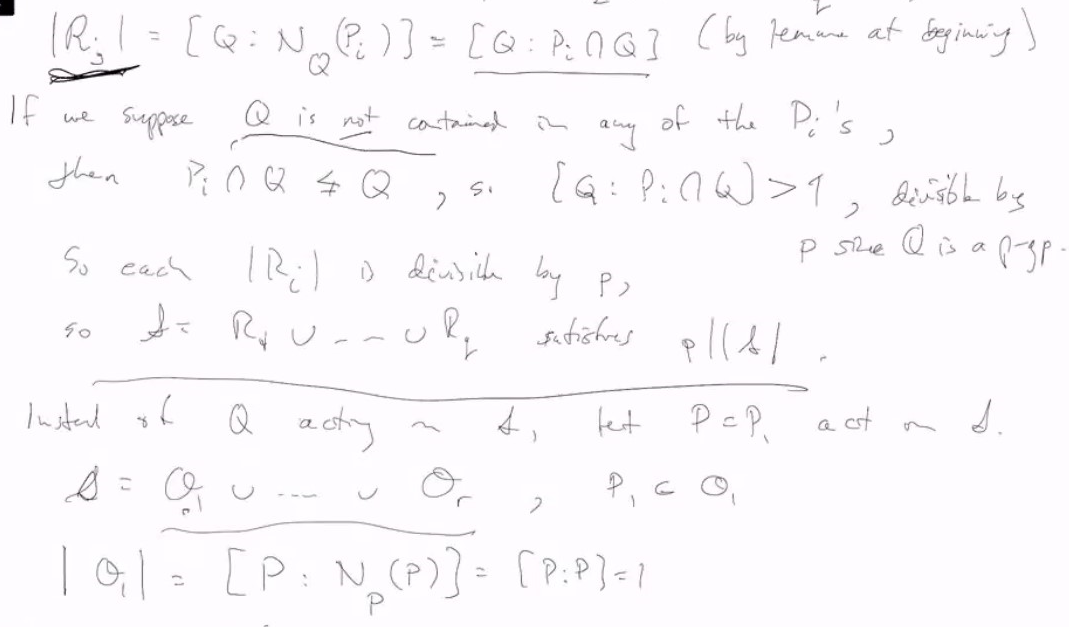 |R_j| = [Q : N_Q(P_i)] = [Q : P_i ∩ Q] (by lemma at beginning)
If we suppose Q is not contained in any of the P_i's,
then P_i ∩ Q ≨ Q, so [Q : P_i ∩ Q] > 1, divisible by
p since Q is a p-gp.
So each |R_i| is divisible by p,
so S = R_1 ∪ -- ∪ R_q satisfies p||S|.
Instead of Q acting on S, let P = P_1 act on S.
S = O_1 ∪ ---- ∪ O_r, P_1 ∈ O_1
|O_1| = [P : N_P(P)] = [P:P] = 1